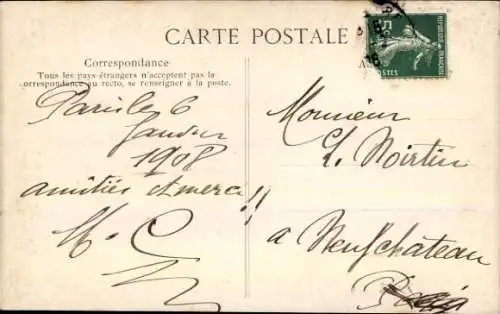 CARTE POSTALE
Correspondance
Tous les pays étrangers n'acceptent pas la
correspondance au recto, se renseigner à la poste.
Paris le 6
Janvier
1908
amitiés et merci !!
Monsieur
Noirtin
à Neufchateau
POSTES